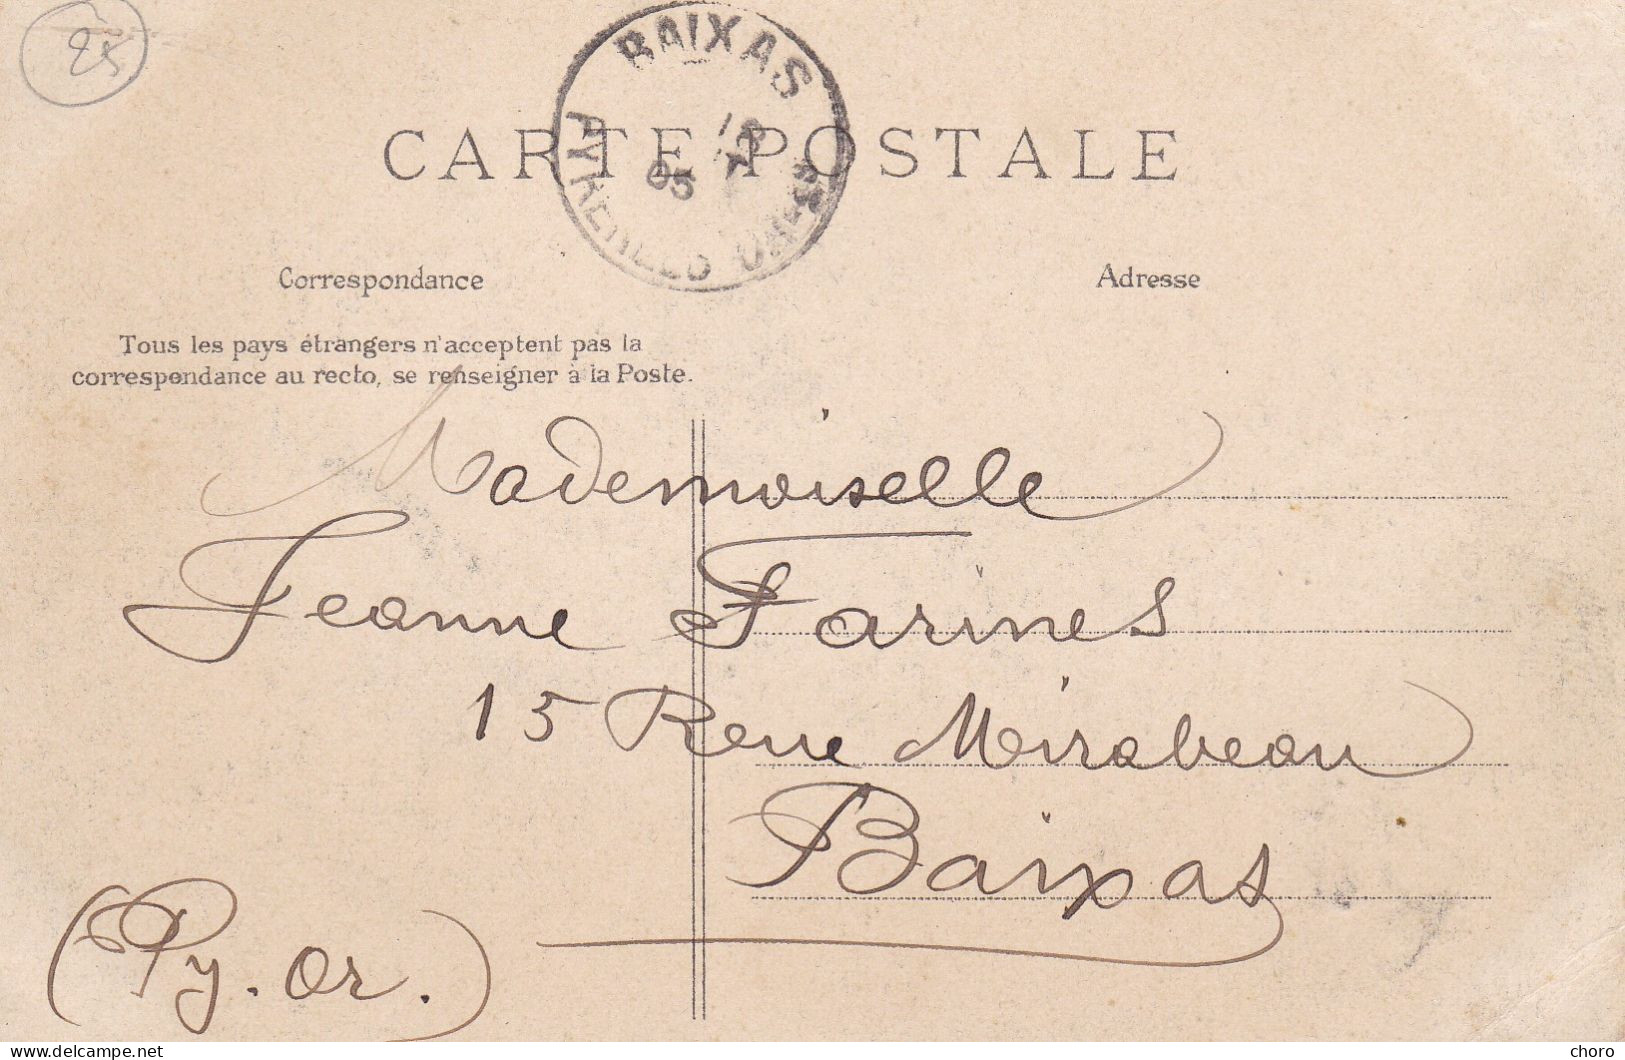 25
BAIXAS
18
05
CARTE POSTALE
Correspondance
Adresse
Tous les pays étrangers n'acceptent pas la
correspondance au recto, se renseigner à la Poste.
Mademoiselle
Jeanne Farines
15 Rue Mirabeau
Baixas
(Py. Or.)
delcampe.net
choro